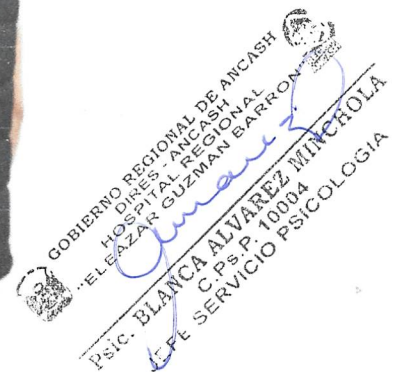 GOBIERNO REGIONAL DE ANCASH
DIRES - ANCASH
HOSPITAL REGIONAL
"ELEAZAR GUZMAN BARRON"
Psic. BLANCA ALVAREZ MINCHOLA
C.Ps.P. 10004
JEFE SERVICIO PSICOLOGIA